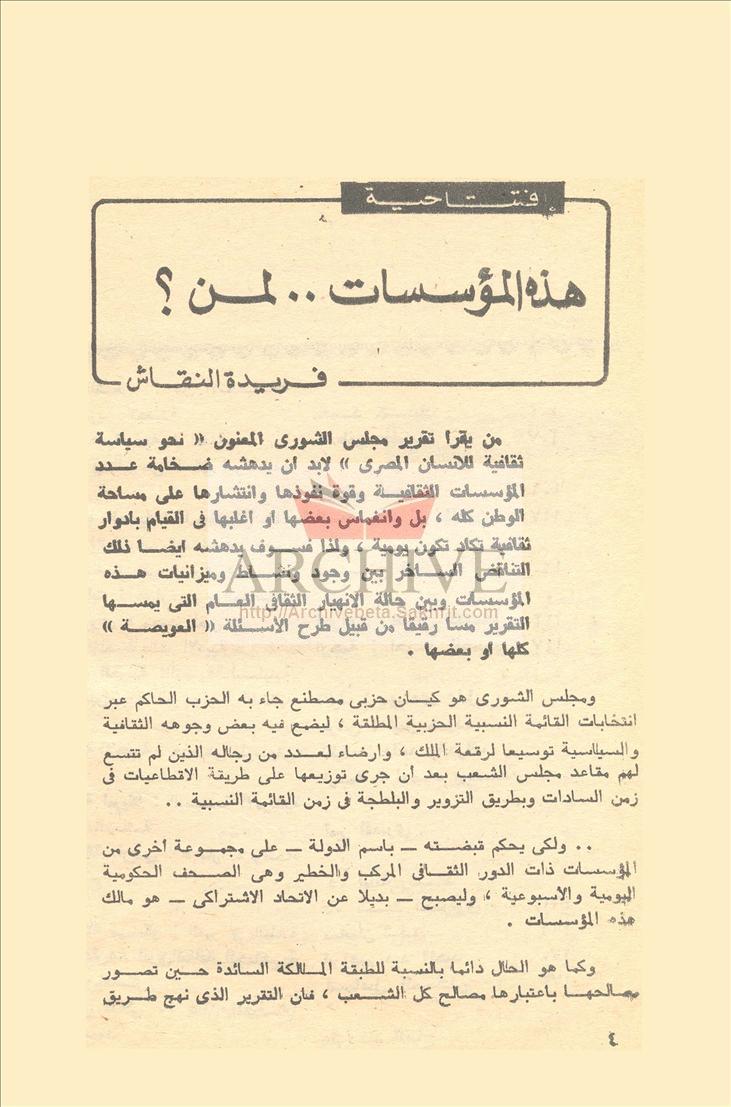 افتتاحية
هذه المؤسسات .. لمن ؟
فريدة النقاش
من يقرأ تقرير مجلس الشورى المعنون « نحو سياسة
ثقافية للانسان المصرى » لابد ان يدهشه ضخامة عدد
المؤسسات الثقافية وقوة نفوذها وانتشارها على مساحة
الوطن كله ، بل وانغماس بعضها او اغلبها فى القيام بادوار
ثقافية تكاد تكون يومية ، ولذا فسوف يدهشه ايضا ذلك
التناقض الساخر بين وجود ونشاط وميزانيات هذه
ARCHIVE
المؤسسات وبين حالة الانهيار الثقافى العام التى يمسها
http://Archivebeta.Sakhrit.com
التقرير مسا رقيقا من قبيل طرح الأسئلة « العويصة »
كلها او بعضها .
ومجلس الشورى هو كيان حزبى مصطنع جاء به الحزب الحاكم عبر
انتخابات القائمة النسبية الحزبية المطلقة ، ليضع فيه بعض وجوهه الثقافية
والسياسية توسيعا لرقعة الملك ، وارضاء لعدد من رجاله الذين لم تتسع
لهم مقاعد مجلس الشعب بعد أن جرى توزيعها على طريقة الاقطاعيات فى
زمن السادات وبطريق التزوير والبلطجة فى زمن القائمة النسبية ..
.. ولكى يحكم قبضته – باسم الدولة – على مجموعة أخرى من
المؤسسات ذات الدور الثقافى المركب والخطير وهى الصحف الحكومية
اليومية والأسبوعية ، وليصبح – بديلا عن الاتحاد الاشتراكى – هو مالك
هذه المؤسسات .
وكما هو الحال دائما بالنسبة للطبقة المالكة السائدة حين تصور
مصالحها باعتبارها مصالح كل الشعب ، فان التقرير الذى نهج طريق
٤